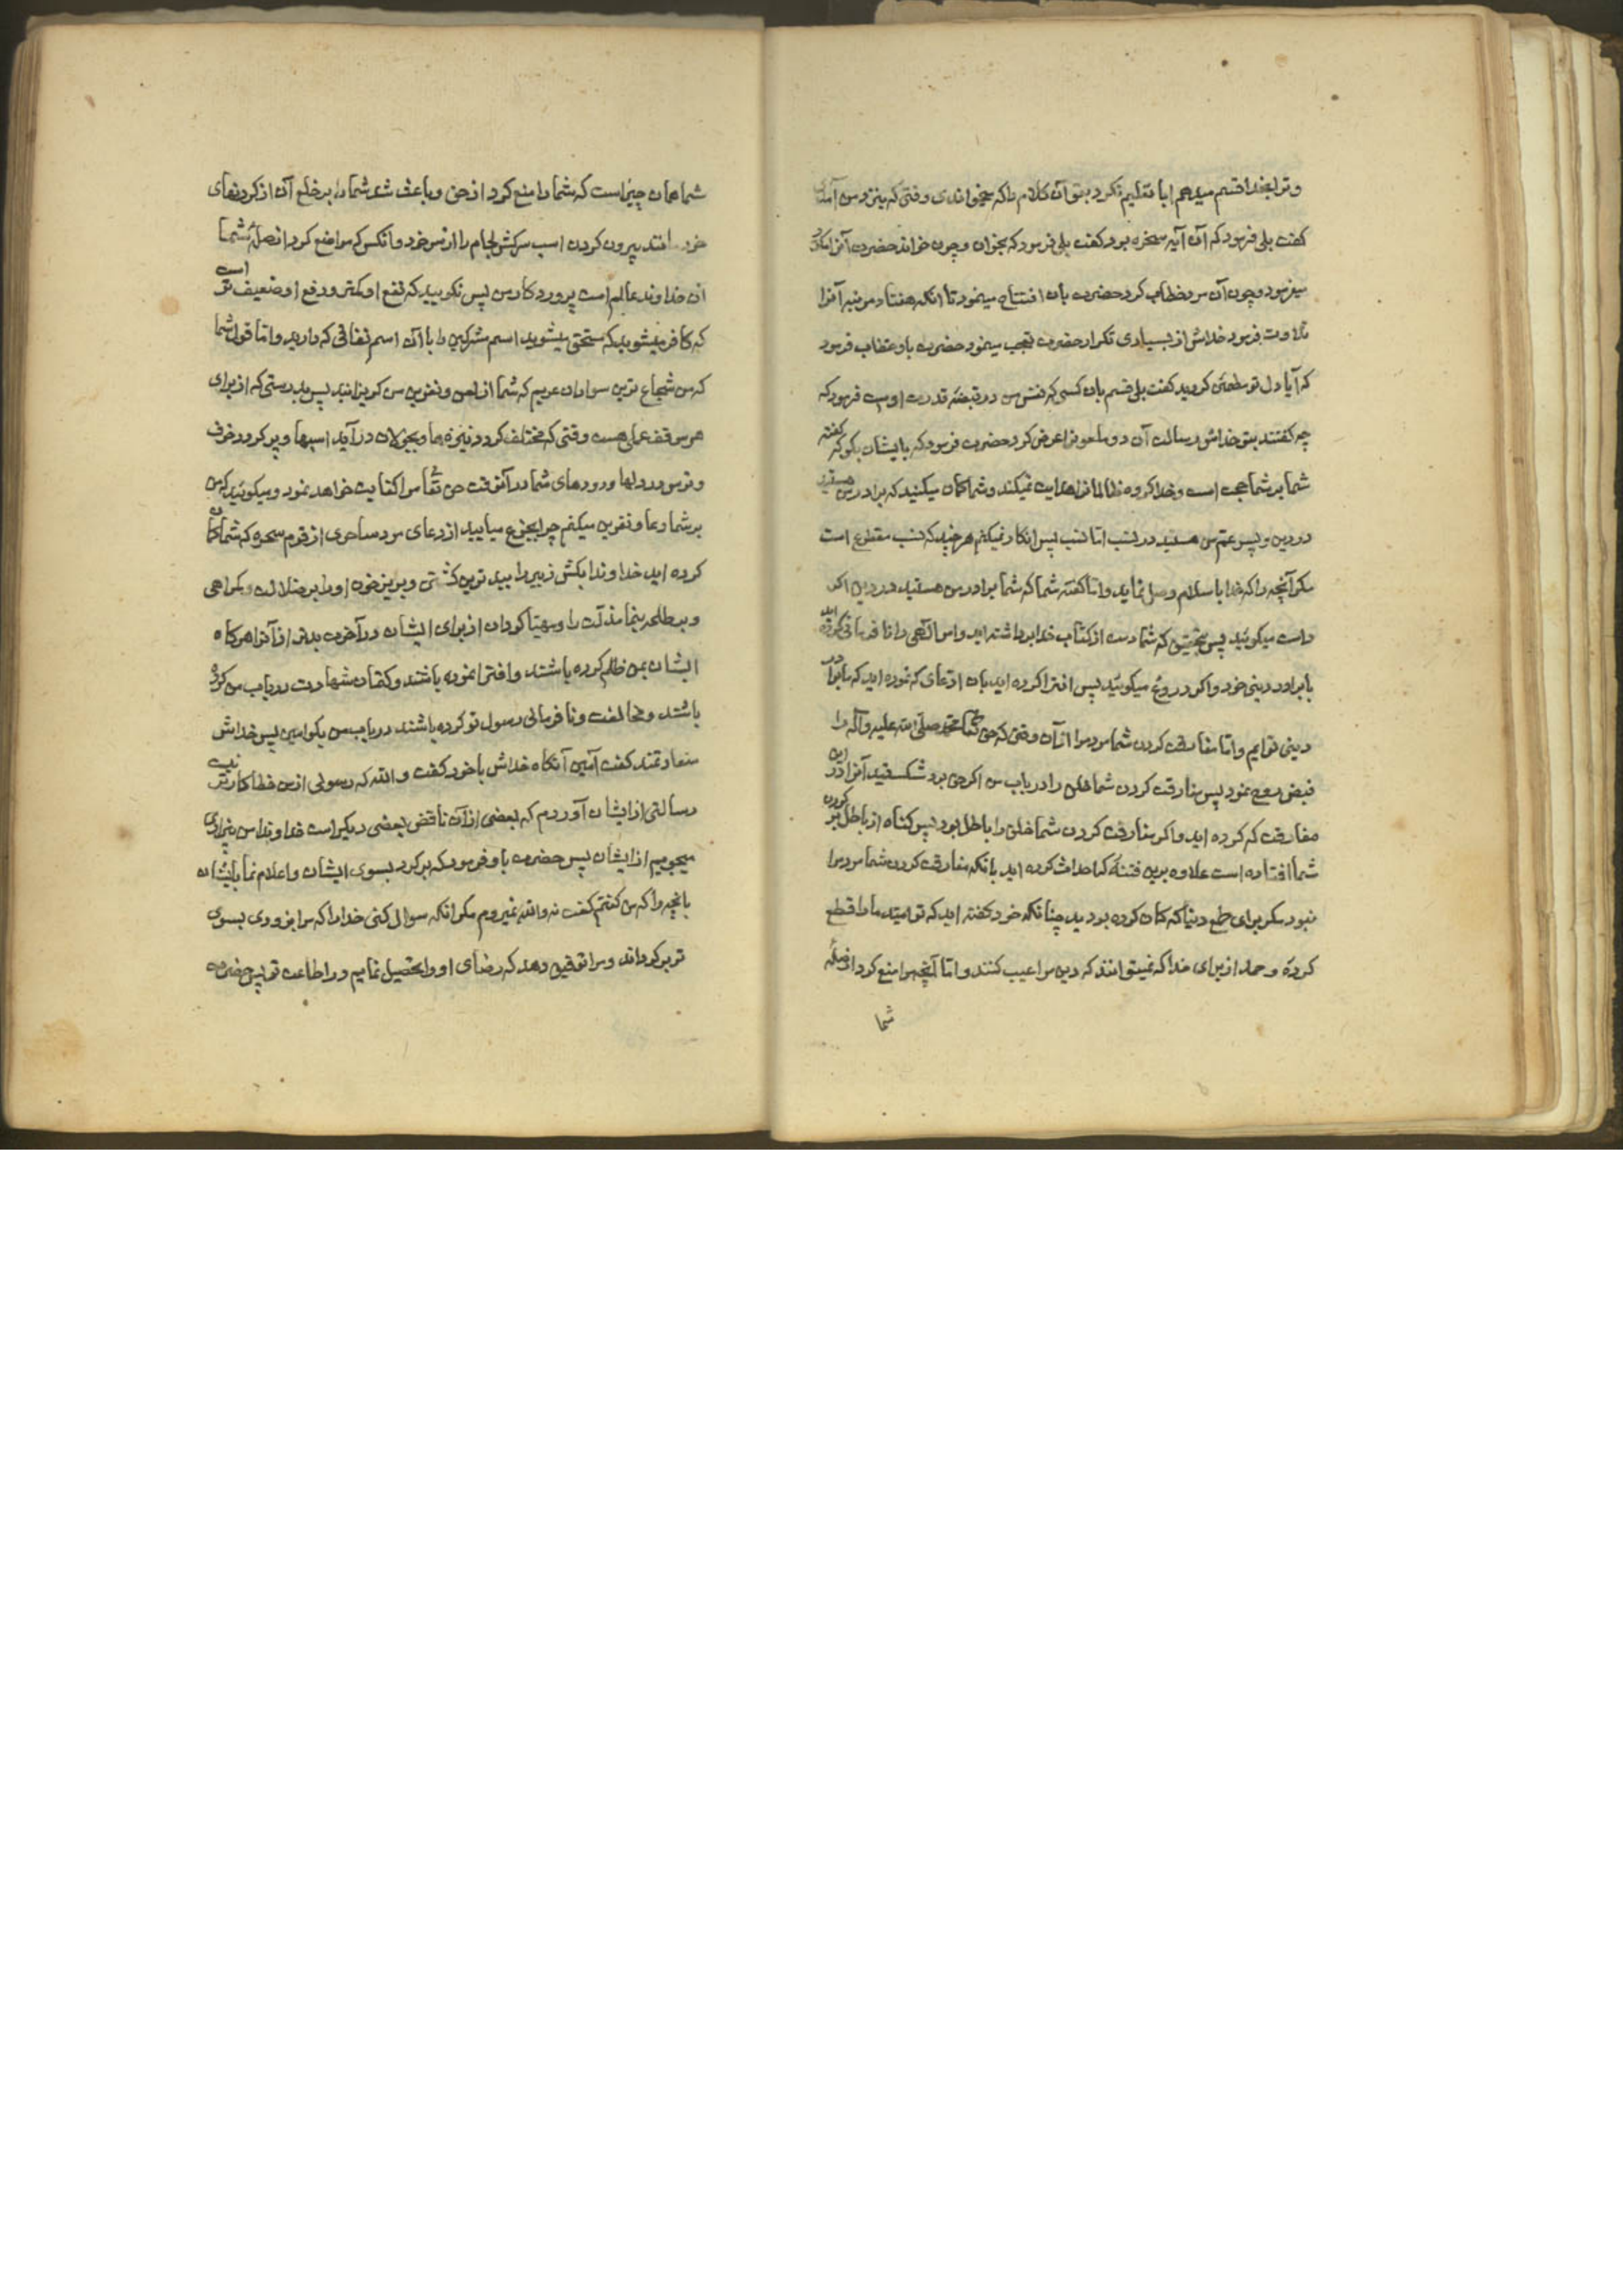 و ترا بخدا قسم میدهم ایا تعلیم نکرد بتو آن کلام را که بخوانی وقتی که بنزد من آمدی
گفت بلی فرمود که آن آیه سخره بود گفت بلی فرمود که بخوان و چون خواند حضرت آنرا مکرر
میفرمود و چون آن مرد خطاب کرد حضرت بان افتتاح مینمود تا انکه هفتاد مرتبه آنرا
تلاوت فرمود خداش از بسیاری تکرار حضرت تعجب مینمود حضرت باو عتاب فرمود
که آیا دل تو مطمئن گردید گفت بلی قسم بان کسی که نفس من در قبضه قدرت اوست فرمود که
چه گفتند بتو خداش رسالت آن دو ملعونرا عرض کرد حضرت فرمود که بایشان بگو که گفته
شما بر شما حجت است و خدا گروه ظالمانرا هدایت نمیکند و شما گمان میکنید که برادر من هستید
در دین و پسر عم من هستید در نسب اما نسب پس انکار نمیکنم هر چند که نسب مقطوع است
مگر آنچه را که خدا باسلام وصل نماید و اما گفته شما که شما برادر من هستید در دین اگر
راست میگوئید پس بتحقیق که شما دست از کتاب خدا برداشته اید و امر الهی را نافرمانی کرده اید
با برادر دینی خود و اگر دروغ میگوئید پس افترا کرده اید بان ادعای که نموده اید که ما برادر
دینی توایم و اما مفارقت کردن شما مردمرا از آن وقتی که حق تعالی محمد صلی الله علیه وآله را
قبض روح نمود پس مفارقت کردن شما خلق را در باب من اگر حق بود شکستید آنرا در این
مفارقت که کرده اید و اگر مفارقت کردن شما خلق را باطل بود پس گناه از باطل کردن بر
شما افتاده است علاوه برین فتنه که احداث کرده اید بانکه مفارقت کردن شما مردمرا
نبود مگر برای طمع دنیا که گمان کرده بودید چنانکه خود گفته اید که تو امید ما را قطع
کردهٔ و حمد از برای خدا که نمیتوانند که دین مرا عیب کنند و اما آنچه مرا منع کرد از صلهٔ
شما
شما همان چیز است که شما را منع کرد از حق و باعث شد شما را بر خلع آن از گردنهای
خود مانند بیرون کردن اسب سرکش لجام را از سر خود و آنکس که مرا منع کرد از صلهٔ شما
آن خداوند عالم است پروردگار من پس نگویید که نفع او کمتر و دفع او ضعیف تر است
که کافر میشوید که مستحق میشوید اسم مشرکین را با آن اسم نفاقی که دارید و اما قول شما
که من شجاع ترین سواران عربم که شما از لعن و نفرین من گریزانید پس بدرستی که از برای
هر موقف عملی هست وقتی که مختلف گردد نیزه ها و بجولان درآید اسبها و پر گردد خوف
و ترس در دلها و درونهای شما در آنوقت حق تعالی مرا کفایت خواهد نمود و میگوئید که من
بر شما دعا و نفرین میکنم چرا بجزع میایید از دعای مرد ساحری از قوم سحره که شما گمان
کرده اید خداوندا بکش زبیر را ببدترین کشتنی و بریز خون او را بر ضلالت و گمراهی
و بر طلحه بنما مذلت را و مهیا گردان از برای ایشان در آخرت بدتر از آنرا هرگاه
ایشان بمن ظلم کرده باشند و افترا نموده باشند و کتمان شهادت در باب من کرده
باشند و مخالفت و نافرمانی رسول تو کرده باشند در باب من بگو امین پس خداش
سعادتمند گفت آمین آنگاه خداش با خود گفت والله که رسولی از من خطاکارتر نیست
رسالتی از ایشان آوردم که بعضی از آن ناقض بعضی دیگر است خداوندا من بیزاری
میجویم از ایشان پس حضرت باو فرمود که برگرد بسوی ایشان و اعلام نما بایشان
بانچه را که من گفتم گفت نه والله نمیروم مگر انکه سوال کنی خدا را که مرا بزودی بسوی
تو برگرداند و مرا توفیق دهد که رضای او را تحصیل نمایم در اطاعت تو پس حضرت